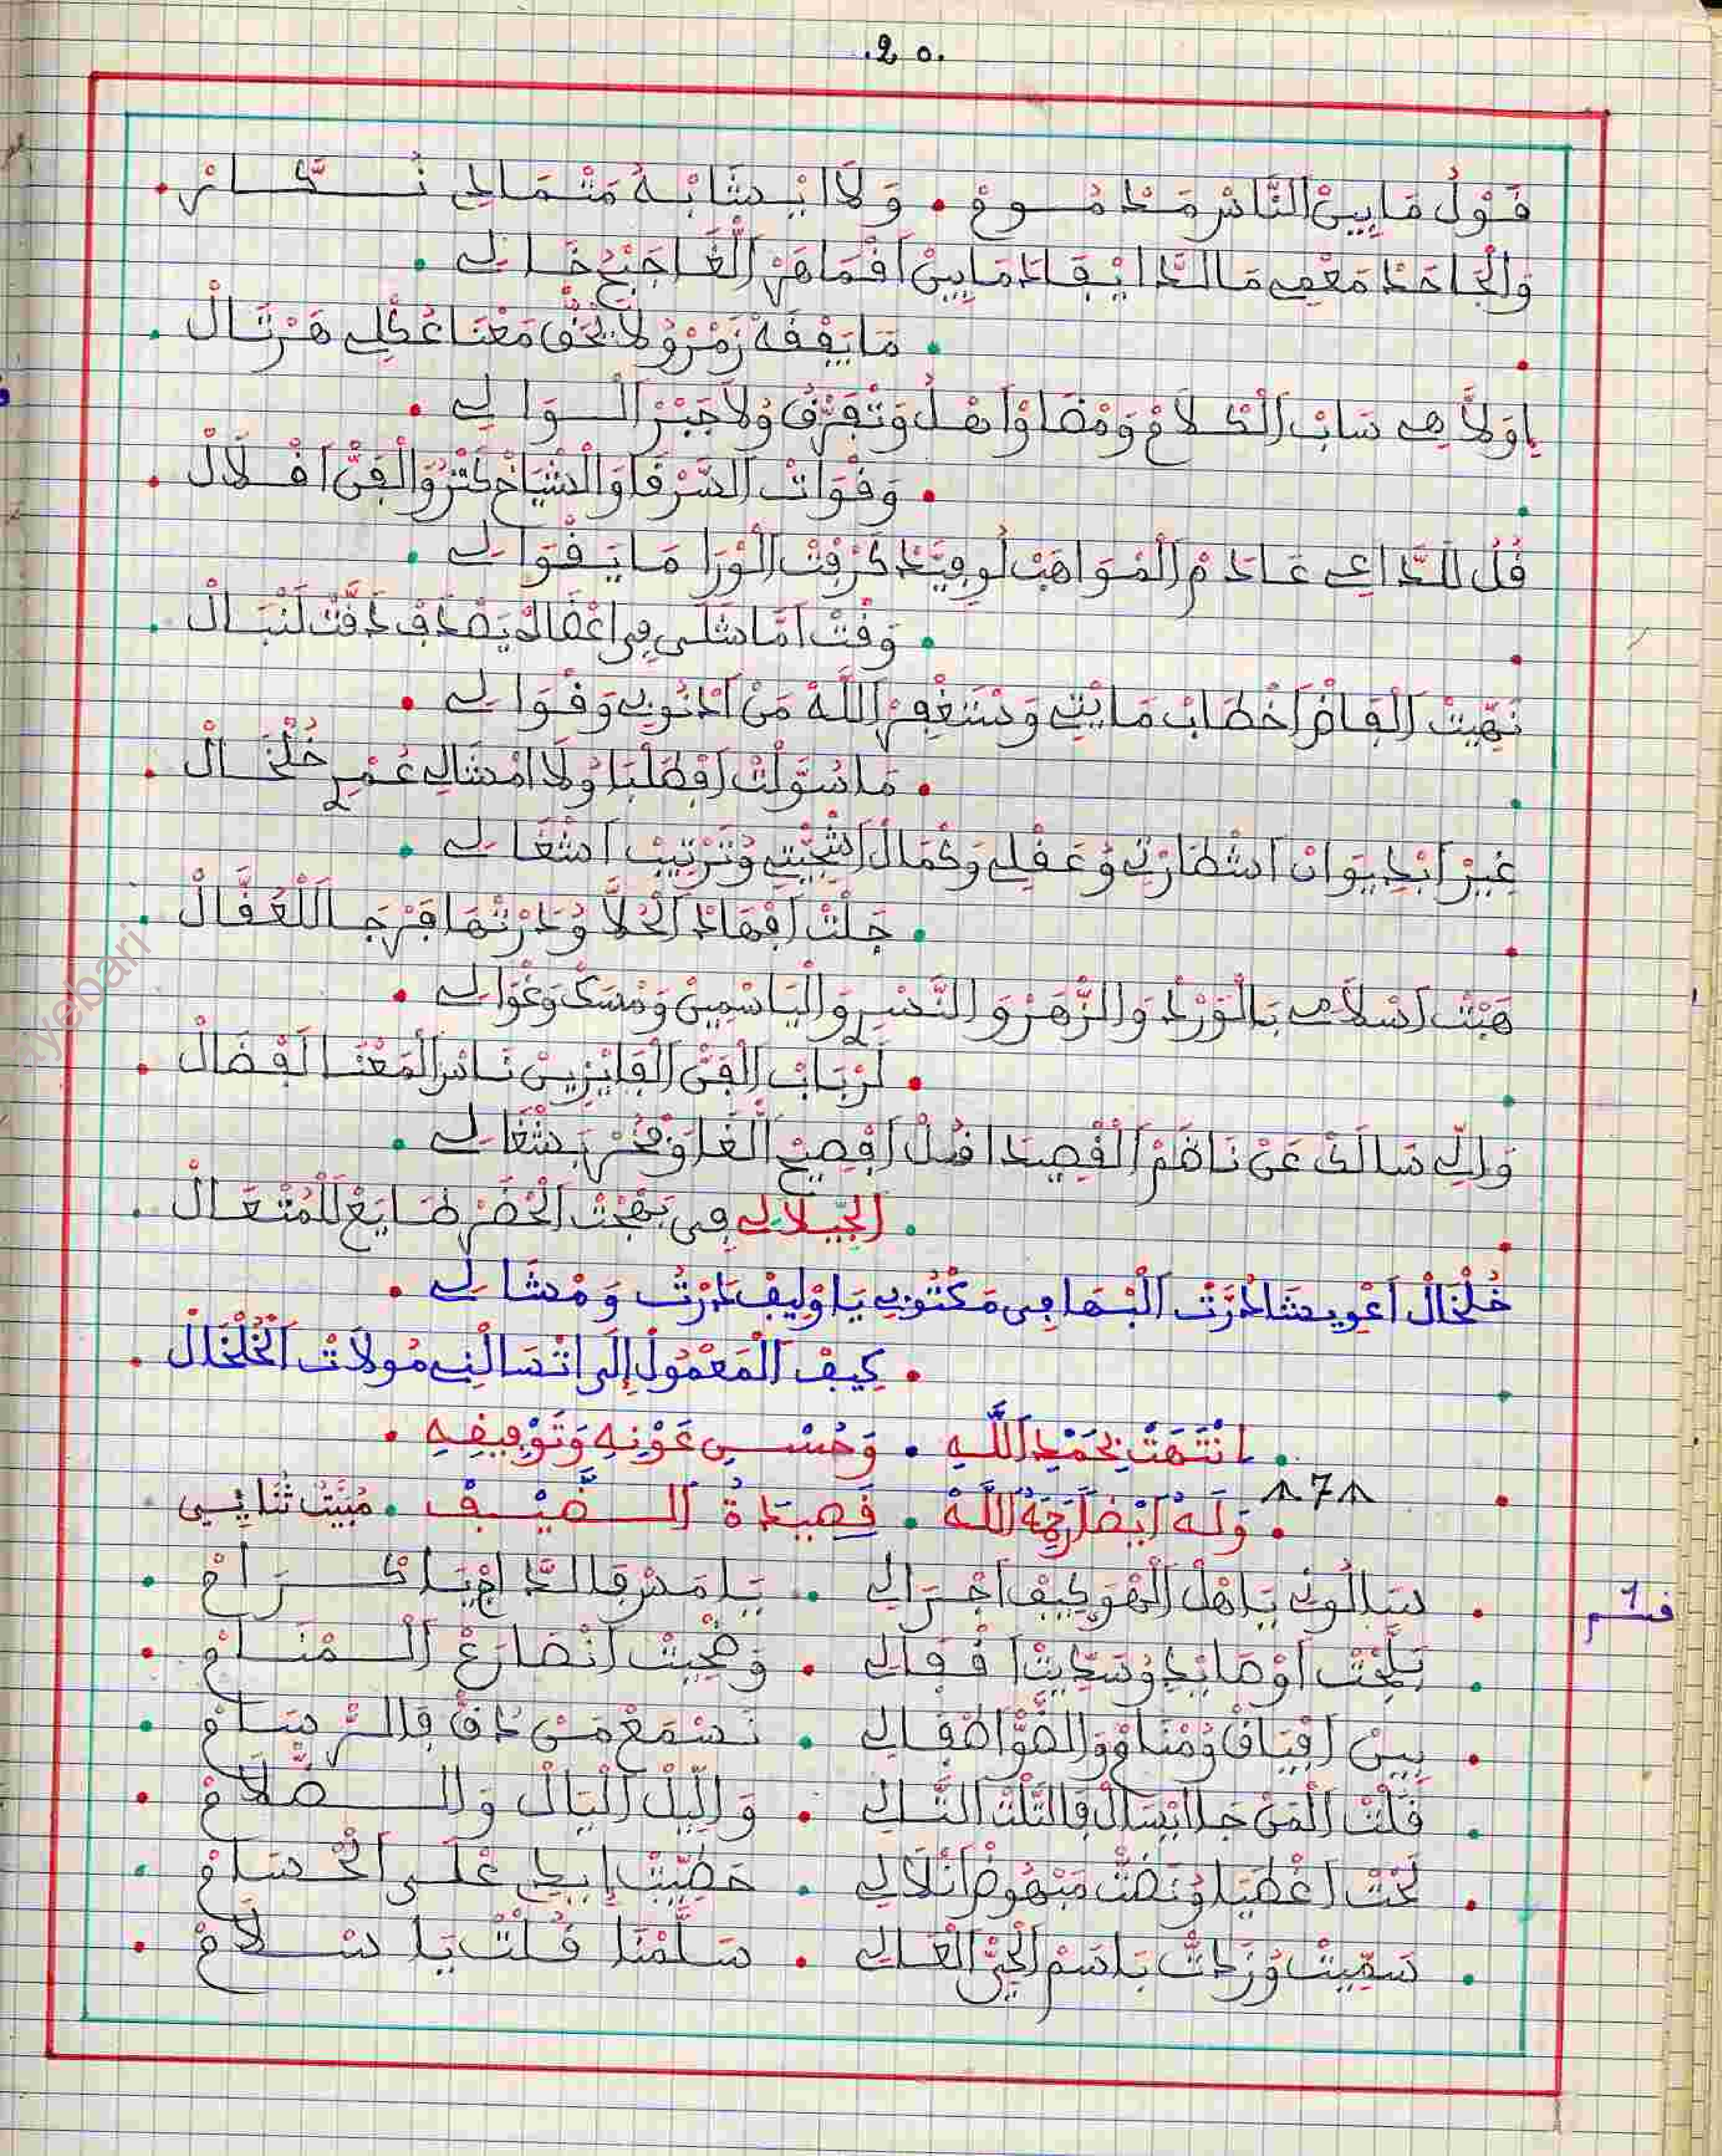 .20.
قول ما بين الناس مخدموع • ولا يشابه متمادي
والجاحد معفي ما لدا يبقا دما بين افماهر الغا جبح خالي •
• ما يفقه رمز ولا يخفى معنا عكلي هرتال •
اولاهي ساب الكلام ومضاو اهل وتفرق ولا جبر الوالي •
• وفوات الشرفا والشياخ كثرو الفن افلال •
قل للداعي عادم المواهب لو فيد كرفت الورا ما يقوالي •
• وقت اما شلى في اغفال يصدف دقت لنبال •
نهيت الفاض اخطاب ما بتي ونستغفر الله من ادنوبي وقوالي •
• ما سولت افطلبا ولا امشالي عمري خلخال •
غير ابديوان اشطارتي وعقلي وكمال اشجيتي وترتيب اشغالي •
• جلت افهاد الحلا ودرتها فرجا للعقال •
هبت اسلامي بالورد والزهر والنسري والياسمين ومسك وغوالي •
• لرباب الفن الفايزين ناس المعنا لفضال •
والي سالك عن ناضم القصيدا قل افصيح الغا وفخر بشغالي •
• الجيلالي في بهجت الحضر طايع للمتعال •
خلخال اعويشا درت البها في مكتوبي يا وليف درت ومشالي •
• كيف المعمول إلى اتسالني مولات الخلخال •
• انتهت بحمد الله • وحسن عونه وتوفيقه •
7
• وله ايضا رحمة الله • قصيدة الضيف • مبيت ثنايي
قسم 1
• سالوني ياهل الهوى كيف اجرالي • يا مدرقا لداج يا كرام •
• بلجت اوصايدي وسديت اقفالي • وضحيت انضارع المنام •
• بين افياق ومنام والضو اطفالي • نسمع من دق فالرسام •
• قلت المن جا ايسال فالتلت التالي • والليل اليال والضلام •
• تحت اغطيا ونضت مبهوض اتلالي • حطيت إيدي على الحسام •
• سميت وزدت باسم الحي العالي • سلمنا قلت يا سلام •
ayebari